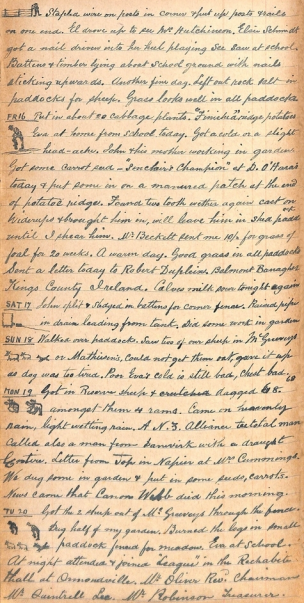 Stapled wire on posts in corner & put up posts & rails
on one end. Ell drove up to see Mr Hutchinson. Elsie Schmidt
got a nail driven into her heel playing See Saw at school.
Battens & timber lying about School ground with nails
sticking upwards. Another fine day. Left out rock salt in
paddocks for sheep. Grass looks well in all paddocks
FRI 16 Put in about 80 cabbage plants. Finished ridge, potatoes
Eva at home from School today. Got a cold or a slight
head-ache. John & his mother working in garden.
Got some carrot seed – "Intermediate Champion" at D. O'Hara's
today & put some in on a manured patch at the end
of potatoe ridge. Found two tooth wether again cast on
& brought him in, will leave him in Shed padd
until I shear him. Mr Beckett sent me 10/- for grass of
foal for 20 weeks. A warm day. Good grass in all paddocks
Sent a letter today to Robert Duplein, Belmont Banagher
Kings County Ireland. Calves milk sour tonight again
SAT 17 John split & I in battens for corner fence. Raised pipe
in drum leading from tank. Did some work in garden
SUN 18 Walked over paddocks. Saw two of our sheep in McGreevys
or Mathesons, could not get them out, gave it up
as dog was too tired. Poor Eva's cold is still bad, chest bad.
MON 19 Got in Reserve sheep & dagged 68
amongst them 4 rams. Came on
rain, light wetting rain. A N.Z. Alliance tee total man
called also a man from with a draught
Letter from Top in Napier at Mrs Cummings.
We dug some in garden & put in some seeds, carrots.
News came that Canon Webb died this morning.
TU 20 Got the 2 sheep out of McGreevys through the fence.
Dug half of my garden. Burned the logs in small
paddock for meadow. Eva at School.
At night attended & joined "League" in the Rechabite
Hall at Ormondville. Mr Oliver Rev. Chairman
Mr Sec. Mr Robinson Treasurer.